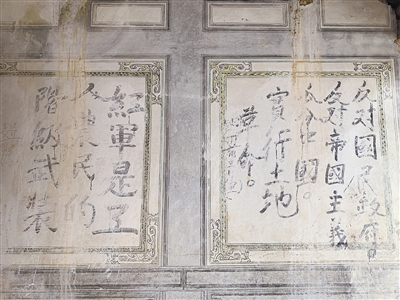 反对國民政府
反对帝國主義
瓜分中國。
實行土地
革命。
紅軍是工
人農民的
階級武裝